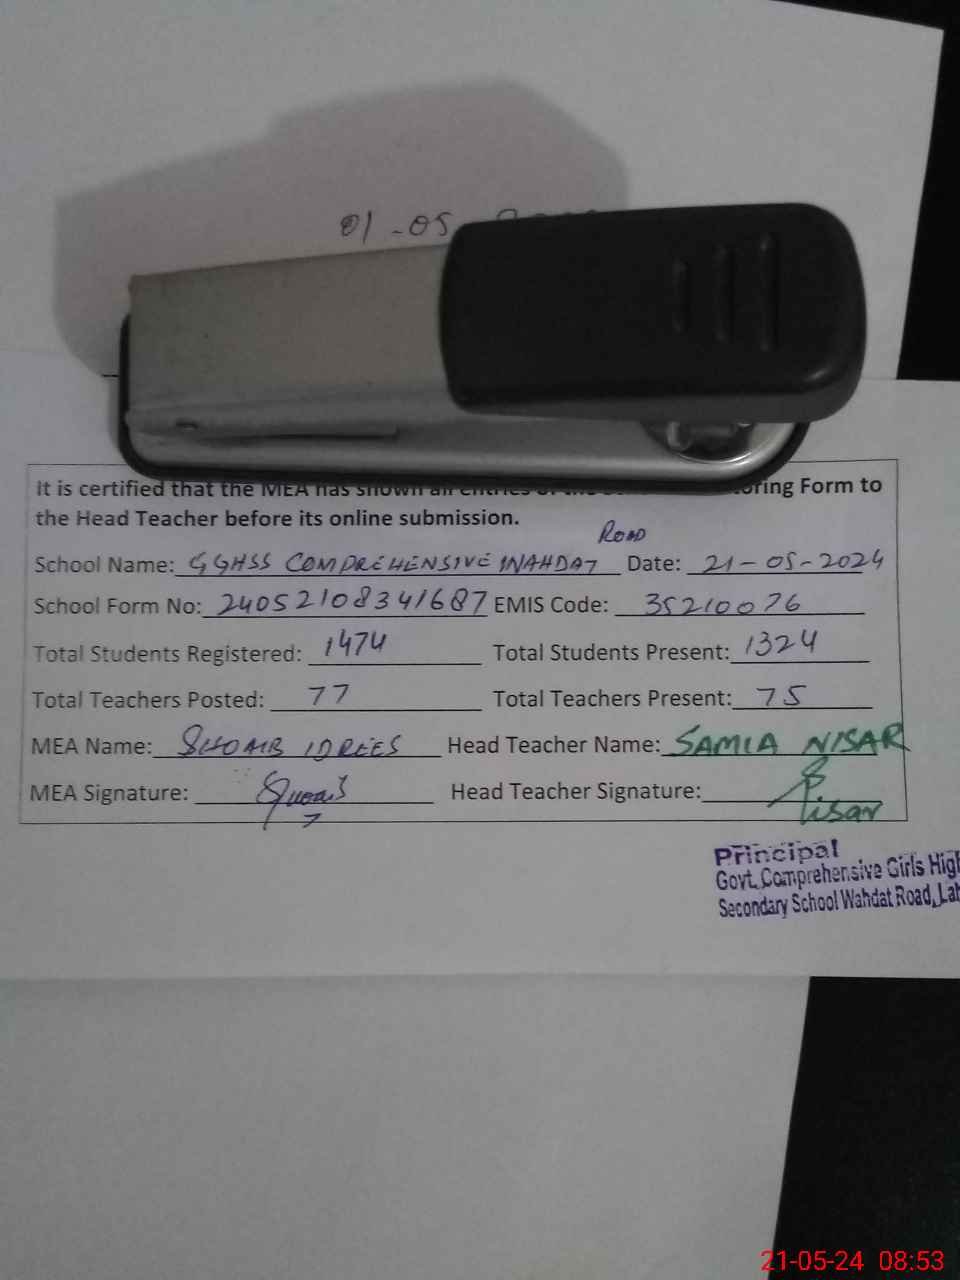 01-05
It is certified that the MEA has shown all entries of the Form to
the Head Teacher before its online submission.
ROAD
School Name: GGHSS COMPREHENSIVE WAHDAT Date: 21-05-2024
School Form No: 24052108341687 EMIS Code: 35210076
Total Students Registered: 1474 Total Students Present: 1324
Total Teachers Posted: 77 Total Teachers Present: 75
MEA Name: SHOAIB IDREES Head Teacher Name: SAMIA NISAR
MEA Signature: Shoaib Head Teacher Signature: Nisar
Principal
Govt. Comprehensive Girls High
Secondary School Wahdat Road, Lah
21-05-24 08:53